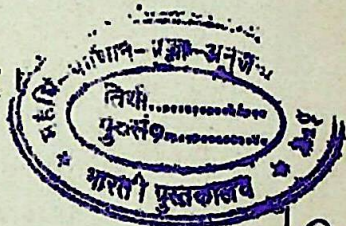 महर्षि-पाणिनि-प्रज्ञा-अनुसं
तिथी..................
पु०सं०..................
* भारती पुस्तकालय *